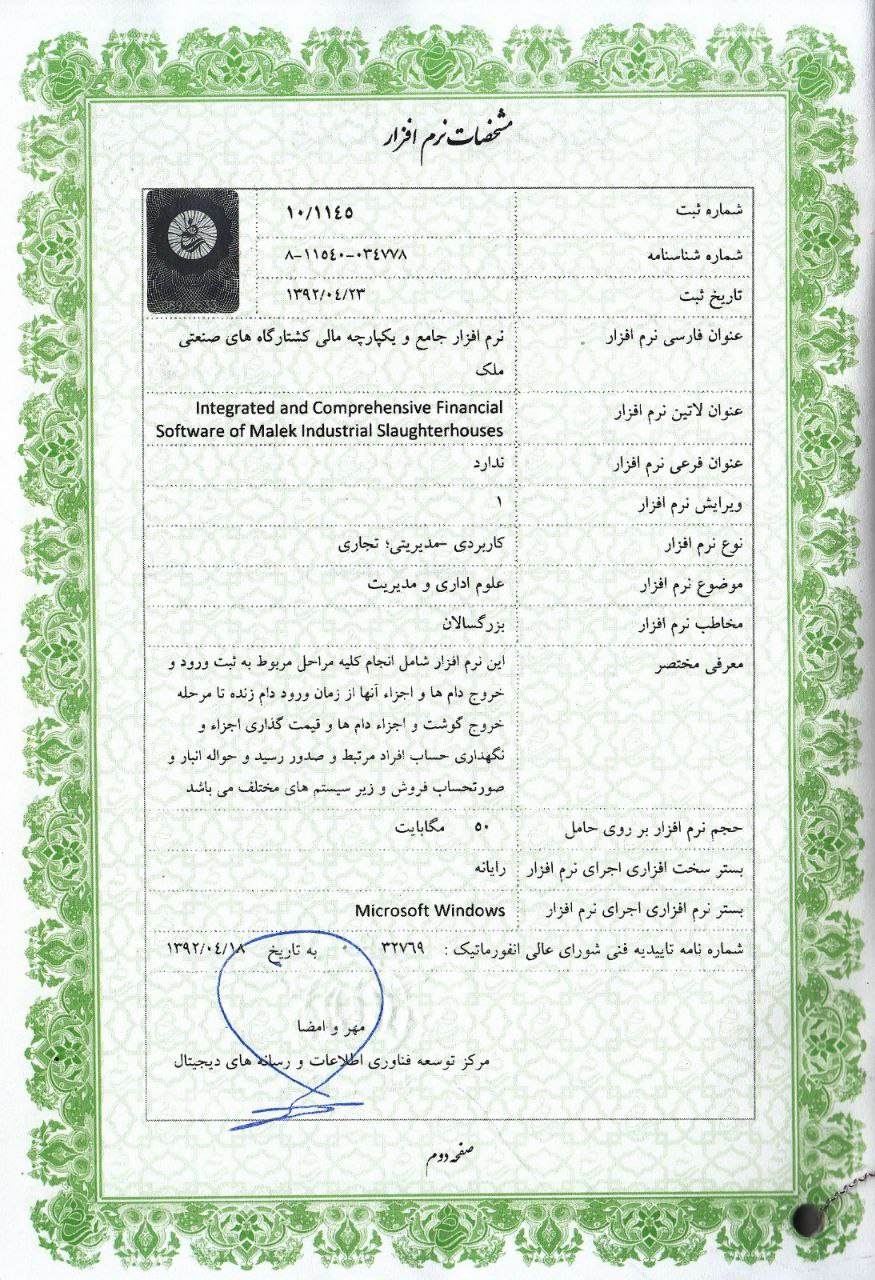 مشخصات نرم افزار
شماره ثبت ۱۰/۱۱٤٥
شماره شناسنامه ۸-۱۱٥٤۰-۰۳٤۷۷۸
تاریخ ثبت ۱۳۹۲/۰٤/۲۳
عنوان فارسی نرم افزار نرم افزار جامع و یکپارچه مالی کشتارگاه های صنعتی
ملک
عنوان لاتین نرم افزار Integrated and Comprehensive Financial
Software of Malek Industrial Slaughterhouses
عنوان فرعی نرم افزار ندارد
ویرایش نرم افزار ۱
نوع نرم افزار کاربردی -مدیریتی؛ تجاری
موضوع نرم افزار علوم اداری و مدیریت
مخاطب نرم افزار بزرگسالان
معرفی مختصر این نرم افزار شامل انجام کلیه مراحل مربوط به ثبت ورود و
خروج دام ها و اجزاء آنها از زمان ورود دام زنده تا مرحله
خروج گوشت و اجزاء دام ها و قیمت گذاری اجزاء و
نگهداری حساب افراد مرتبط و صدور رسید و حواله انبار و
صورتحساب فروش و زیر سیستم های مختلف می باشد
حجم نرم افزار بر روی حامل ٥۰ مگابایت
بستر سخت افزاری اجرای نرم افزار رایانه
بستر نرم افزاری اجرای نرم افزار Microsoft Windows
شماره نامه تاییدیه فنی شورای عالی انفورماتیک : ۳۲۷٦۹ به تاریخ ۱۳۹۲/۰٤/۱۸
مهر و امضا
مرکز توسعه فناوری اطلاعات و رسانه های دیجیتال
صفحه دوم